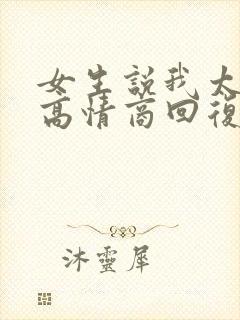 女生説我太
高情商回復
沐靈犀